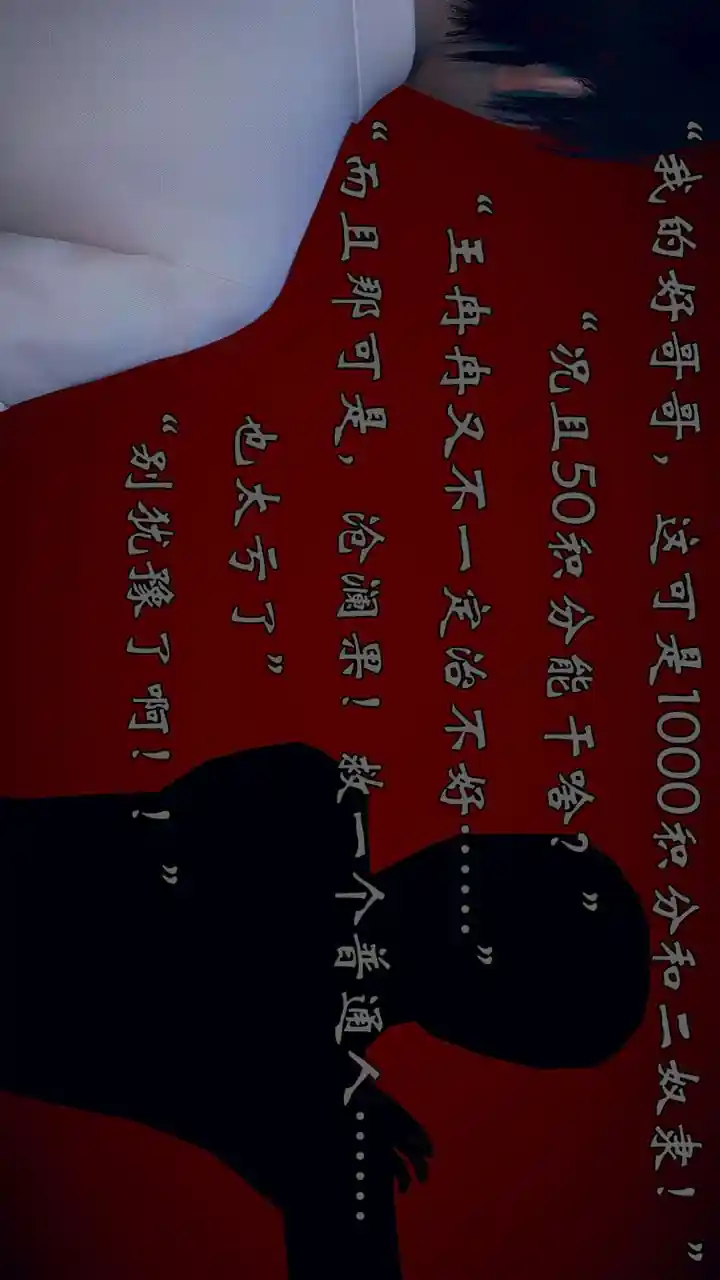 “我的好哥哥，这可是1000积分和二奴隶！”
“况且50积分能干啥？”
“王冉冉又不一定治不好……”
“而且那可是，沧澜果！救一个普通人……
也太亏了”
“别犹豫了啊！！”